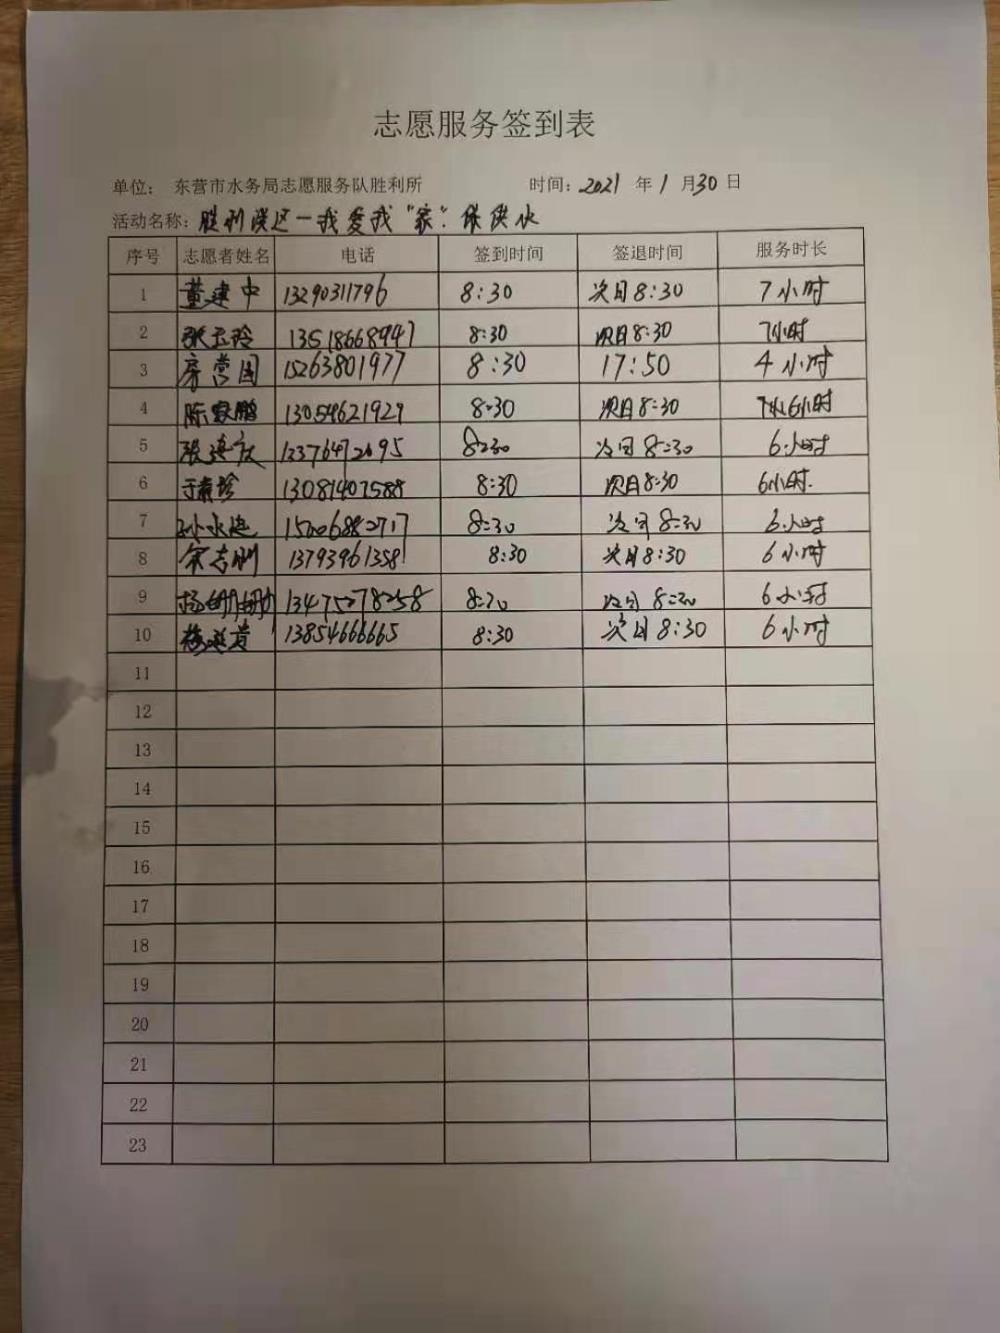 志愿服务签到表
单位: 东营市水务局志愿服务队胜利所 时间: 2021 年 1 月 30 日
活动名称: 胜利社区一我爱我"家"保供水
序号 志愿者姓名 电话 签到时间 签退时间 服务时长
1 董建中 13290311796 8:30 次日8:30 7小时
2 张玉玲 13518668947 8:30 次日8:30 7小时
3 房营国 15263801977 8:30 17:50 4小时
4 陈家鹏 13054621927 8:30 次日8:30 6小时
5 张建 13376472695 8:30 次日8:30 6小时
6 于 13081407588 8:30 次日8:30 6小时.
7 孙永 15006882717 8:30 次日8:30 6小时
8 宋志刚 13793961358 8:30 次日8:30 6小时
9 杨 13475278258 8:30 次日8:30 6小时
10 13854666665 8:30 次日8:30 6小时
11
12
13
14
15
16
17
18
19
20
21
22
23